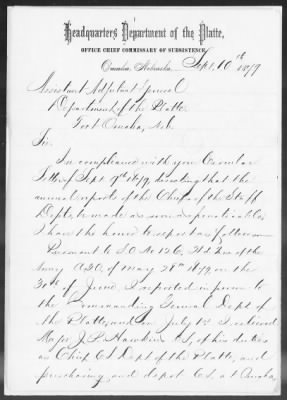 Headquarters Department of the Platte,
OFFICE CHIEF COMMISSARY OF SUBSISTENCE,
Omaha, Nebraska, Sept. 10th 1879
Assistant Adjutant General
Department of the Platte
Fort Omaha, Neb.
Sir:
In compliance with your Circular
letter of Sept. 9th 1879, directing that the
annual reports of the Chiefs of the Staff
Depts. be made as soon as practicable
I have the honor to report as follows:
Pursuant to S.O. No 126, Hd. Qrs. of the
Army A.G.O. of May 28th 1879, on the
30th of June, I reported in person to
the Commanding General Dept of
the Platte, and on July 1st I relieved
Major J.P. Hawkins C.S., of his duties
as Chief C.S. Dept of the Platte, and
purchasing and depot C.S. at Omaha,